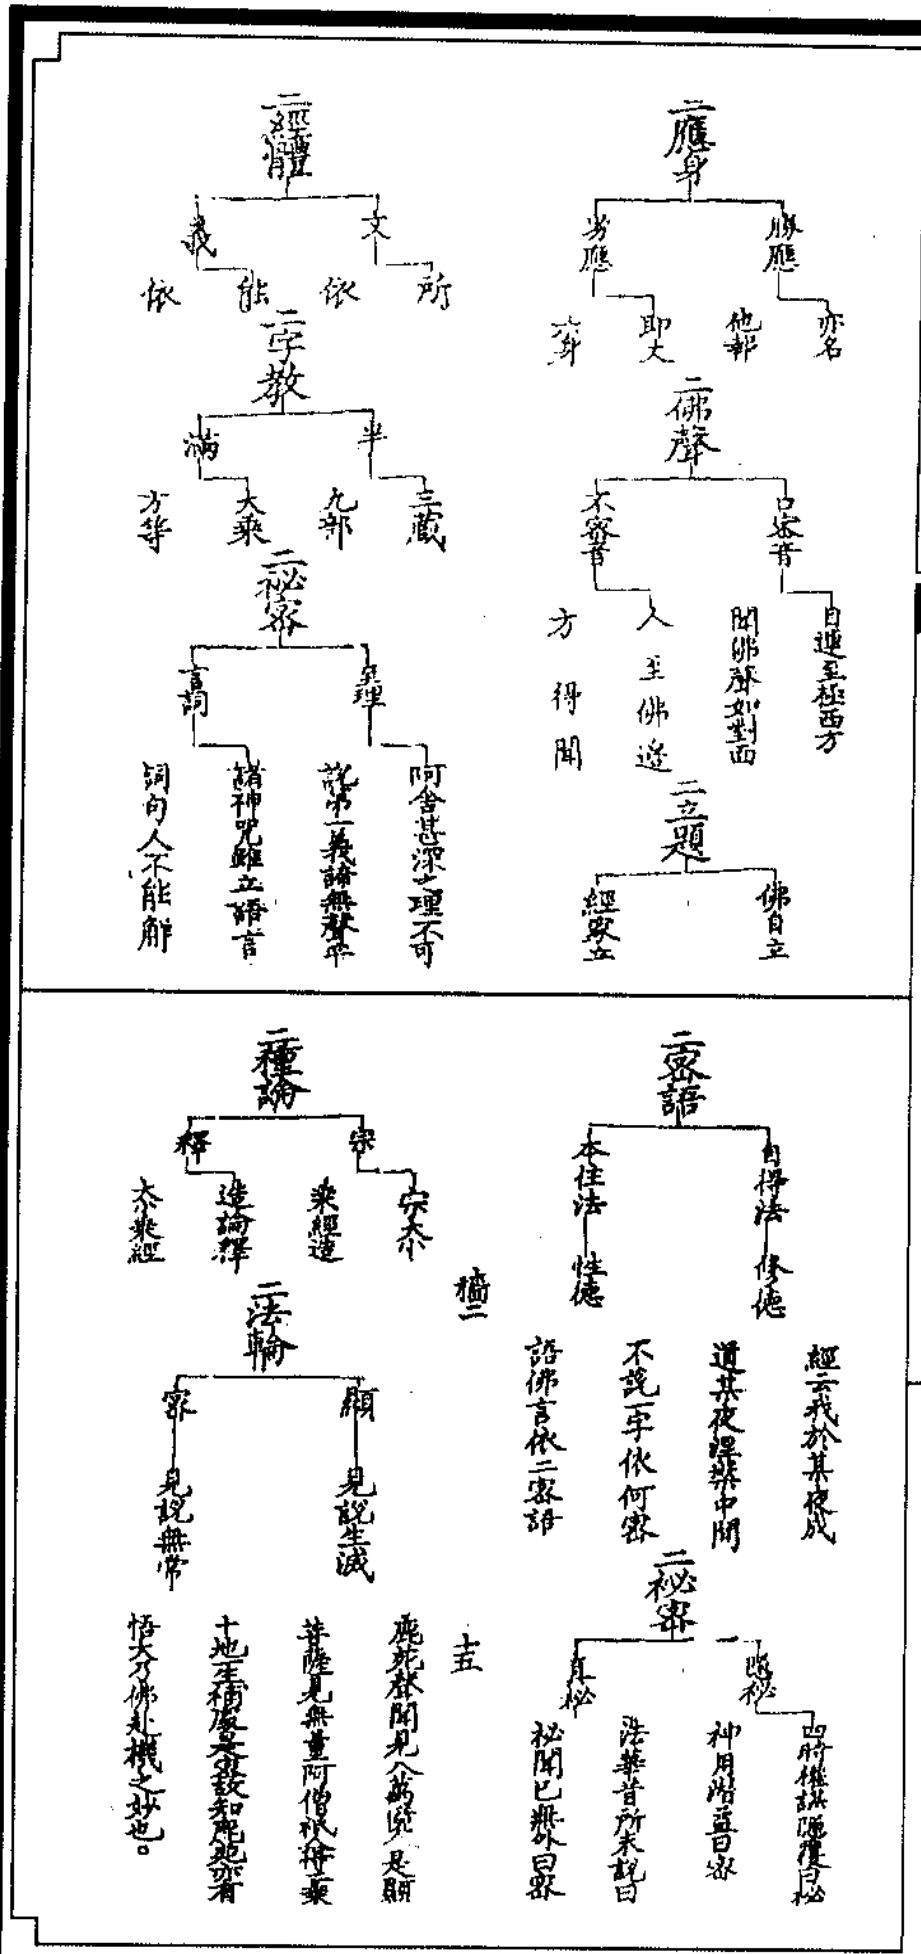 二應身
勝應
亦名
他報
劣應
即大
六身
二佛聲
口密音
目連至極西方
聞佛聲如對面
不密音
人至佛邊
方得聞
二立題
佛自立
經家立
二經體
文
所
依
義
能
依
二字教
半
三藏
九部
滿
大乘
方等
二祕密
至理
阿含甚深之理不可
說第一義諦無聲字
言詞
諸神咒雖立語言
詞句人不能解
二密語
自得法
修德
本住法
性德
經云我於某夜成
道某夜涅槃中間
不說一字依何密
語佛言依二密語
二祕密
隱祕
四時權謀隱覆曰祕
神用潛益曰密
真祕
法華昔所未說曰
祕開已無外曰密
橘二
十五
二種論
宗
宗大小
乘經造
釋
造論釋
大小乘經
二法輪
顯
見說生滅
密
見說無常
鹿苑聲聞見八萬
是顯
菩薩見無量阿僧祇人得二乘
十地一生補處是密故知鹿苑亦有
悟大乃佛赴機之妙也。